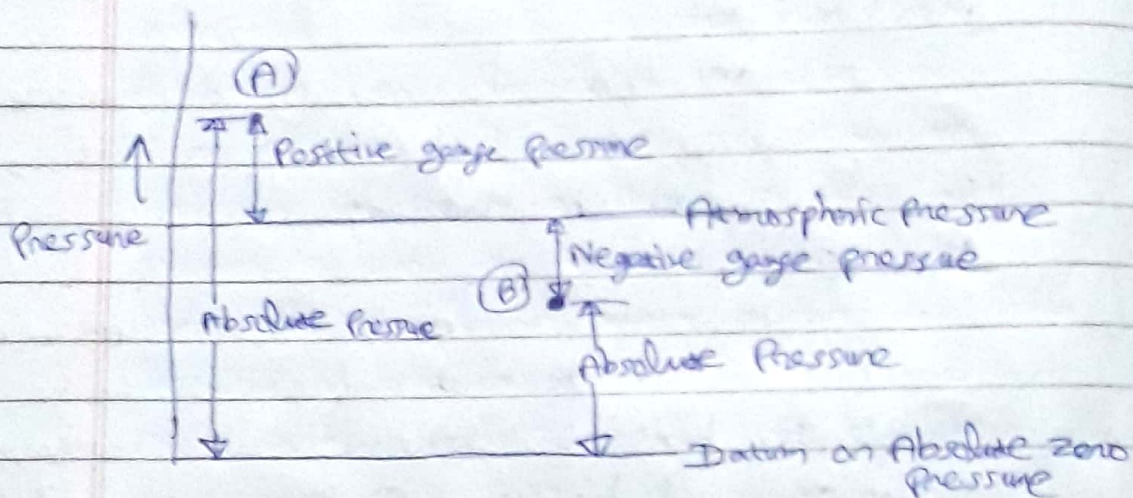 A
Positive gauge Pressure
Atmospheric Pressure
Pressure
Negative gauge pressure
B
Absolute Pressure
Absolute Pressure
Datum or Absolute zero
Pressure